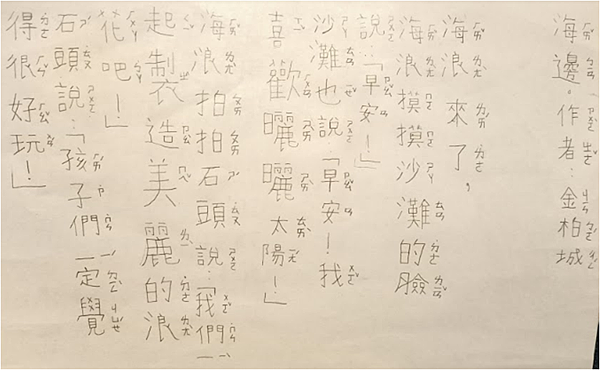 海邊。作者：金柏城
海浪來了，
海浪摸摸沙灘的臉
說：「早安！」
沙灘也說：「早安！我
喜歡曬曬太陽！」
海浪拍拍石頭說：「我們一
起製造美麗的浪
花吧！」
石頭說：「孩子們一定覺
得很好玩！」